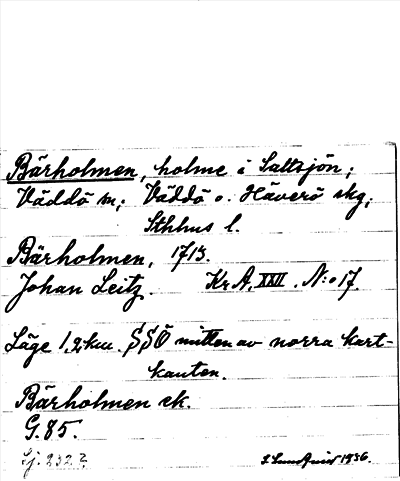 Bärholmen, holme i Saltsjön;
Väddö sn; Väddö o. Häverö skg;
Sthlms l.
Bärholmen, 1713.
Johan Leitz. Kr A. XXII. N:o 17.
Läge 1,2 km. SSÖ mitten av norra kart-
kanten.
Bärholmen ek.
G. 85.
Lj. 232
S. Lundquist 1936.